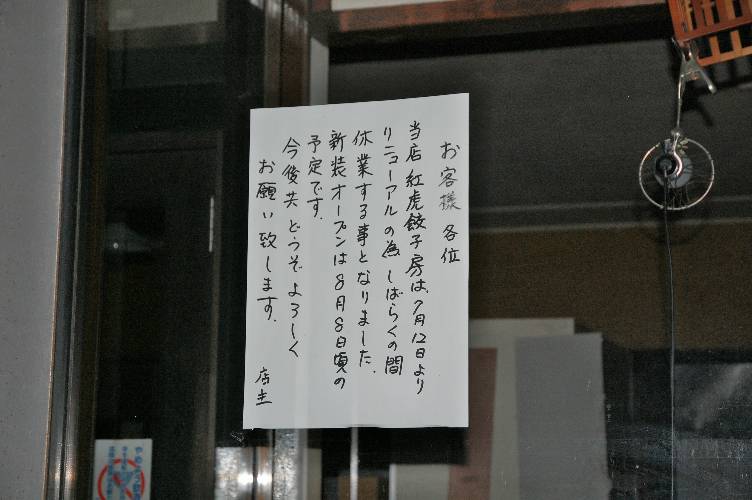 お客様各位
当店 紅虎餃子房は、7月12日より
リニューアルの為しばらくの間
休業する事となりました。
新装オープンは8月8日頃の
予定です。
今後共どうぞよろしく
お願い致します。
店主